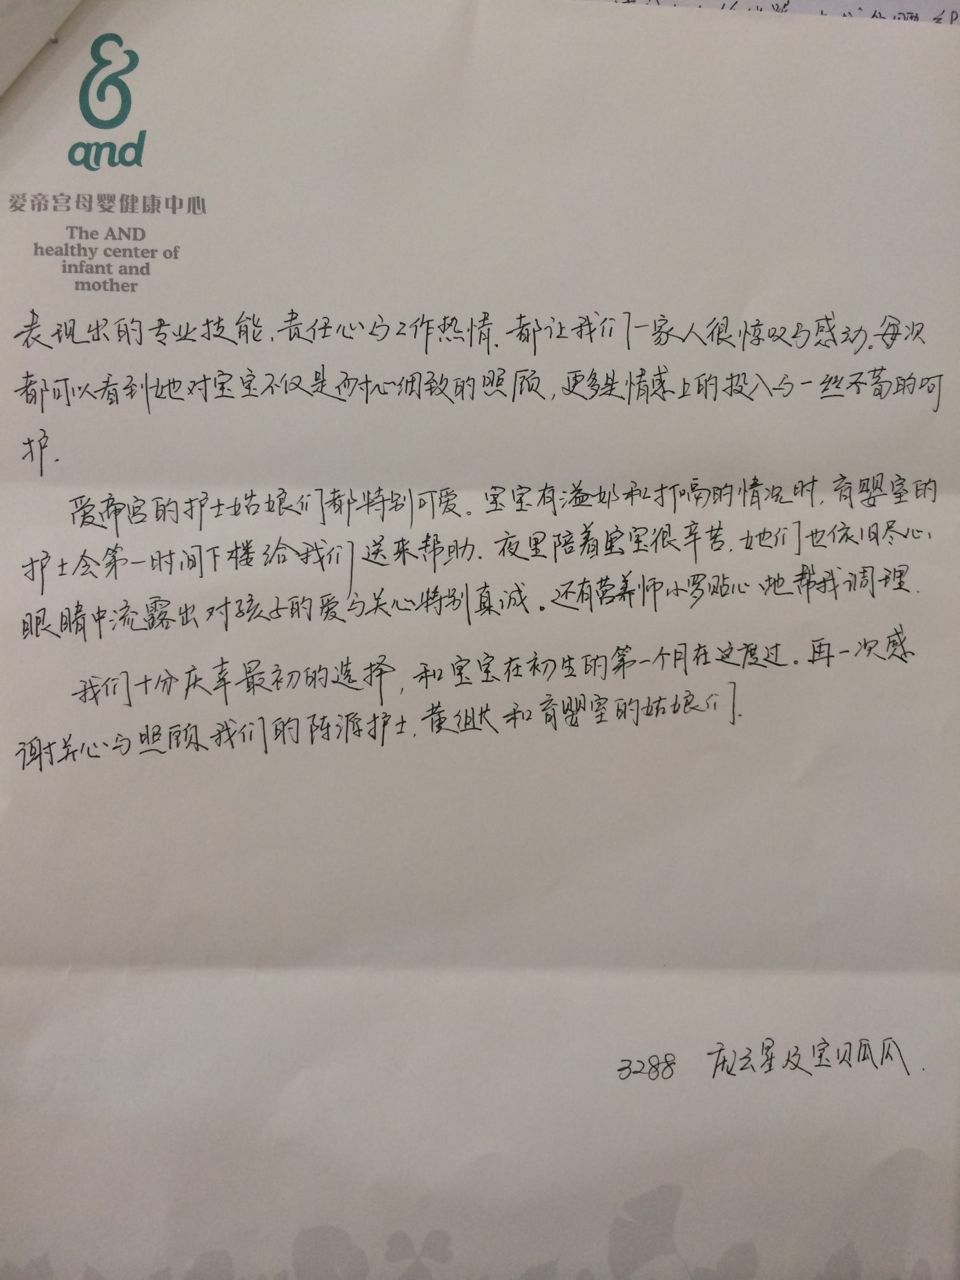 and
爱帝宫母婴健康中心
The AND
healthy center of
infant and
mother
表现出的专业技能、责任心与工作热情、都让我们一家人很惊叹与感动。每次
都可以看到她对宝宝不仅是耐心细致的照顾,更多是情感上的投入与一丝不苟的呵
护.
爱帝宫的护士姑娘们都特别可爱。宝宝有溢奶和打嗝的情况时,育婴室的
护士会第一时间下楼给我们送来帮助.夜里陪着宝宝很辛苦,她们也依旧尽心,
眼睛中流露出对孩子的爱与关心特别真诚。还有营养师小罗贴心地帮我调理.
我们十分庆幸最初的选择,和宝宝在初生的第一个月在这度过。再一次感
谢关心与照顾我们的陈源护士,黄组长和育婴室的姑娘们.
3288 云星及宝贝瓜瓜.